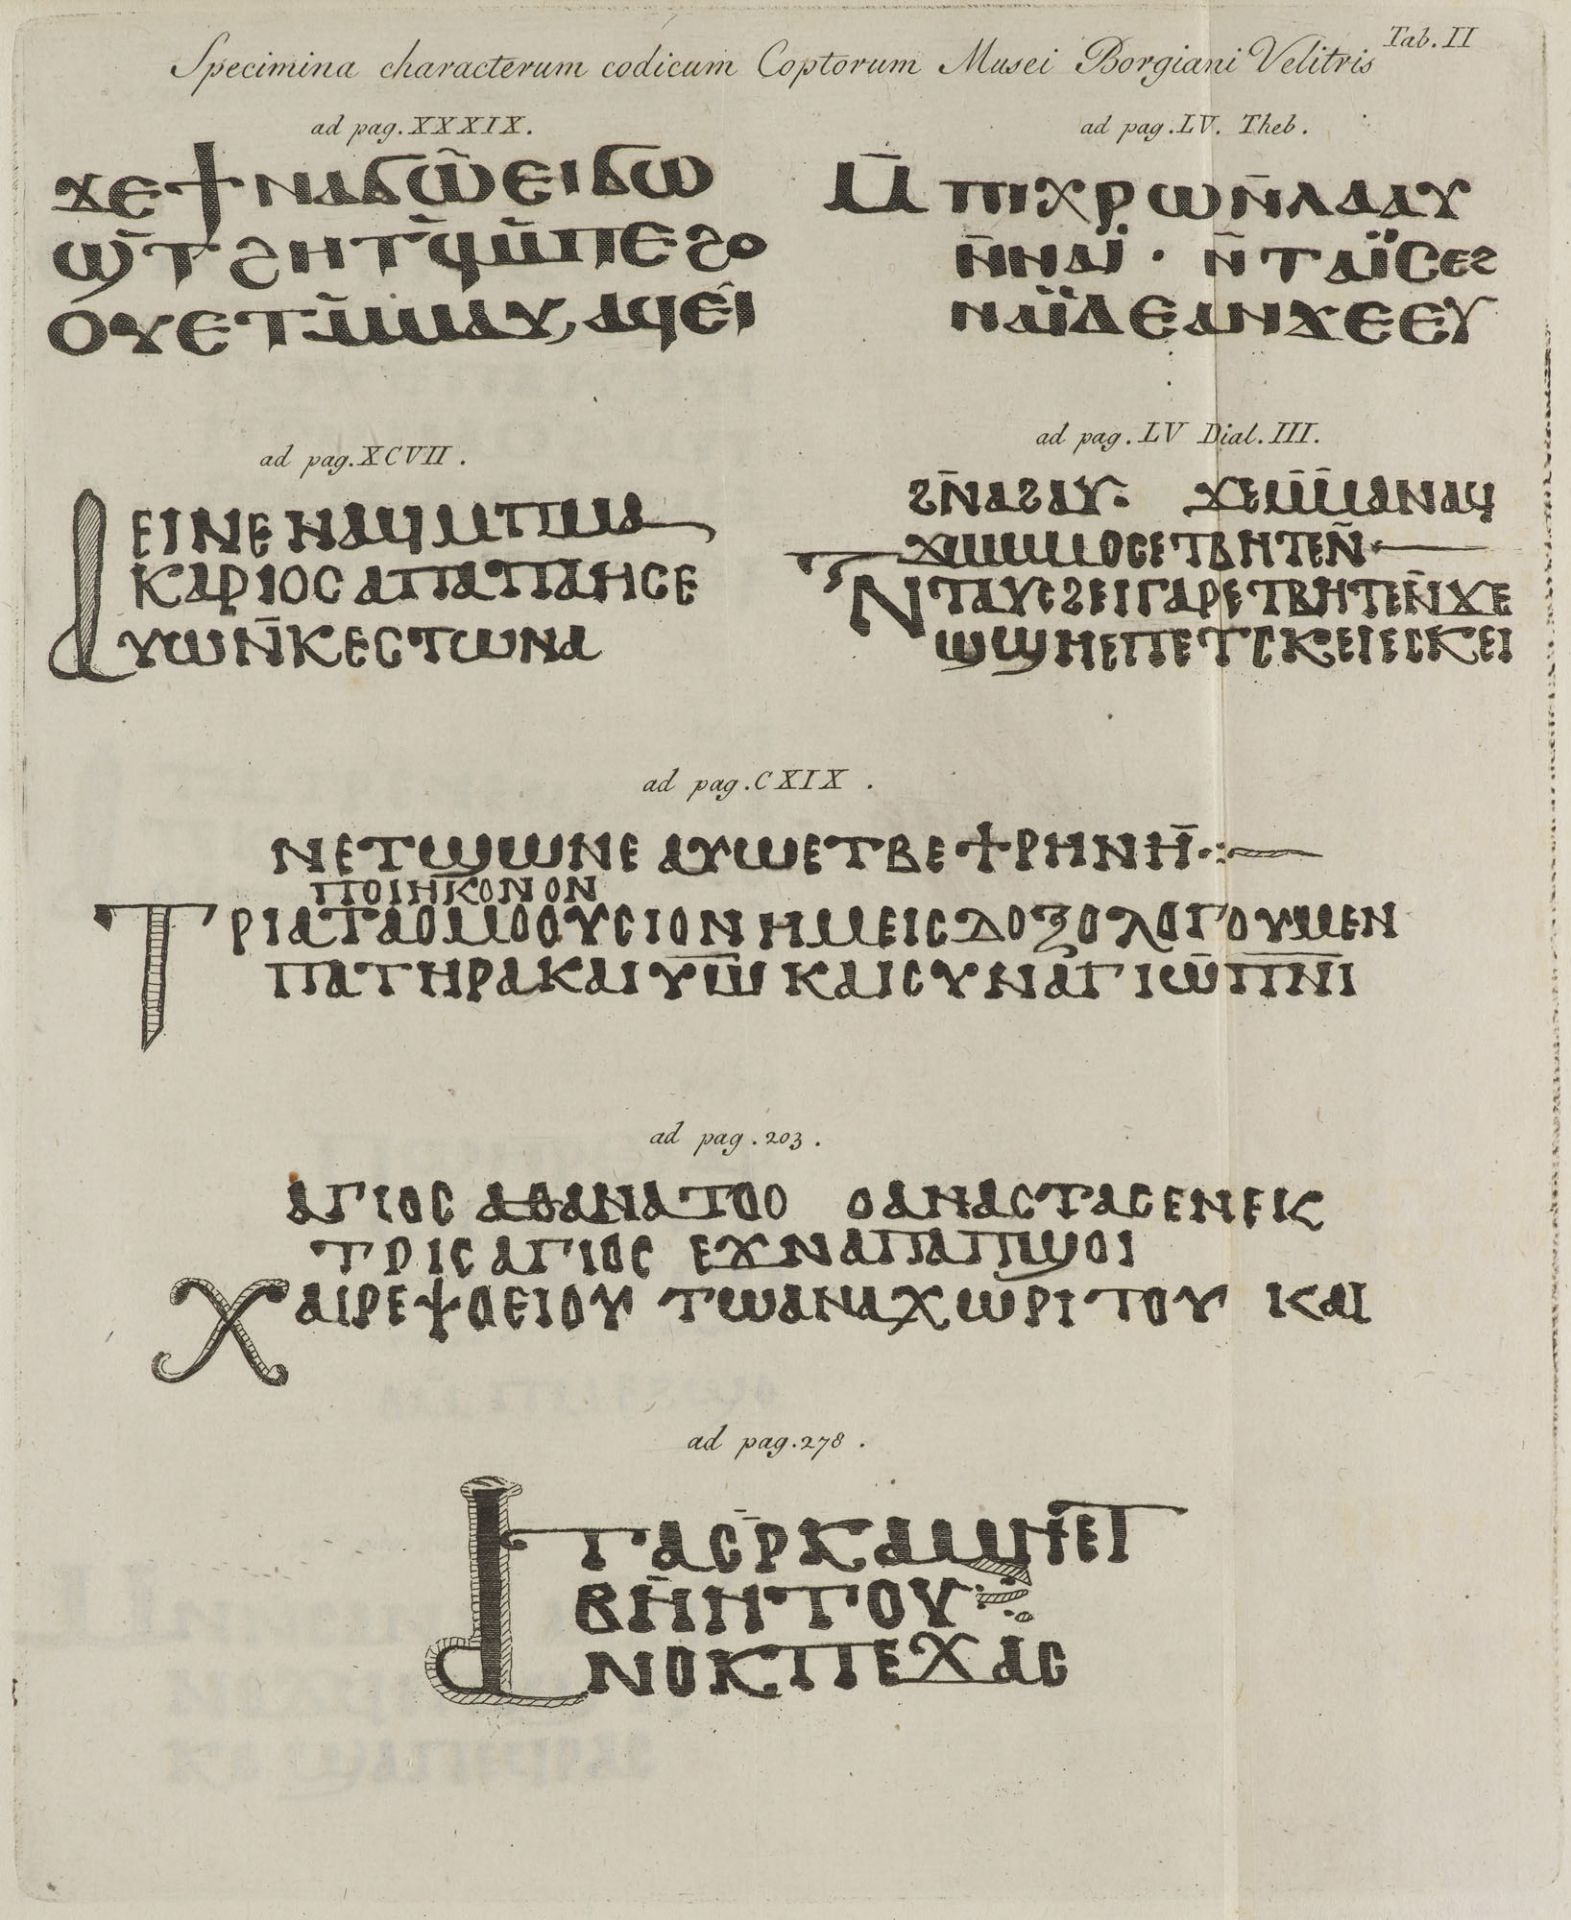 Specimina characterum codicum Coptorum Musei Borgiani Velitris
Tab. II
ad pag. XXXIX.
ϫⲉϯⲛⲁϭⲱ̄ⲉⲓϭⲱ
ϣ̄ⲧϩⲏⲧϥ̄ⲙ̄ⲡⲉϩⲟ
ⲟⲩⲉⲧⲙ̄ⲙⲁⲩ, ⲁϥⲉⲓ̂
ad pag. LV. Theb.
ⲙ̄ⲡⲓⲭⲣⲱⲛ̄ⲗⲁⲁⲩ
ⲛ̄ⲛⲁⲓ̈ · ⲛ̄ⲧⲁⲓ̈ⲥⲉϩ
ⲛⲁⲓ̈ⲇⲉⲁⲛϫⲉⲉⲩ
ad pag. XCVII.
ⲁⲉⲓⲛⲉⲛⲁϥⲙⲡⲙⲁ
ⲕⲁⲣⲓⲟⲥⲁⲡⲁⲡⲁⲏⲥⲉ
ⲩⲱⲛ̄ⲕⲉⲥⲧⲱⲛⲁ
ad pag. LV Dial. III.
ϩⲛ̄ⲁϩⲁⲩ: ϫⲉⲙ̄ⲙ̄ⲁⲛⲁϥ
ϫⲓⲙⲙⲟⲥⲉⲧⲃⲏⲧⲉⲛ̄·
ⲛⲧⲁⲩⲥϩⲉⲓⲅⲁⲣⲉⲧⲃⲏⲧⲉⲛ̄ϫⲉ
ϣϣⲏⲉⲡⲉⲧⲥⲕⲉⲓⲉⲥⲕⲉⲓ
ad pag. CXIX.
ⲛⲉⲧϣⲱⲛⲉ ⲁⲩⲱⲉⲧⲃⲉϯⲣⲏⲛⲏ̄·:
ⲡⲟⲓⲏⲕⲟⲛⲟⲛ
ⲧⲣⲓⲁⲧⲁⲟⲙⲟⲟⲩⲥⲓⲟⲛⲏⲙⲉⲓⲥⲇⲟⲝⲟⲗⲟⲅⲟⲩⲙⲉⲛ
ⲡⲁⲧⲏⲣⲁⲕⲁⲓⲩⲱ̄ⲕⲁⲓⲥⲩⲛⲁⲅⲓⲱ̄ⲡ̄ⲛ̄ⲓ
ad pag. 203.
ⲁⲅⲓⲟⲥ ⲁⲑⲁⲛⲁⲧⲟⲟ ⲟⲁⲛⲁⲥⲧⲁⲥⲉⲛⲉⲕ
ⲧⲣⲓⲥⲁⲅⲓⲟⲥ ⲉϫⲛⲁⲡⲁⲡϣⲟⲓ
ⲭⲁⲓⲣⲉⲯⲟⲉⲓⲟⲩ ⲧⲱⲁⲛⲁⲭⲱⲣⲓⲧⲟⲩ ⲓⲕⲁⲓ
ad pag. 278.
ⲧⲁⲥⲣ̄ⲕⲁϣⲛⲉⲧ
ⲃⲏ̄ⲏⲧⲟⲩ
ⲁⲛⲟⲕⲡⲉϫⲁⲥ